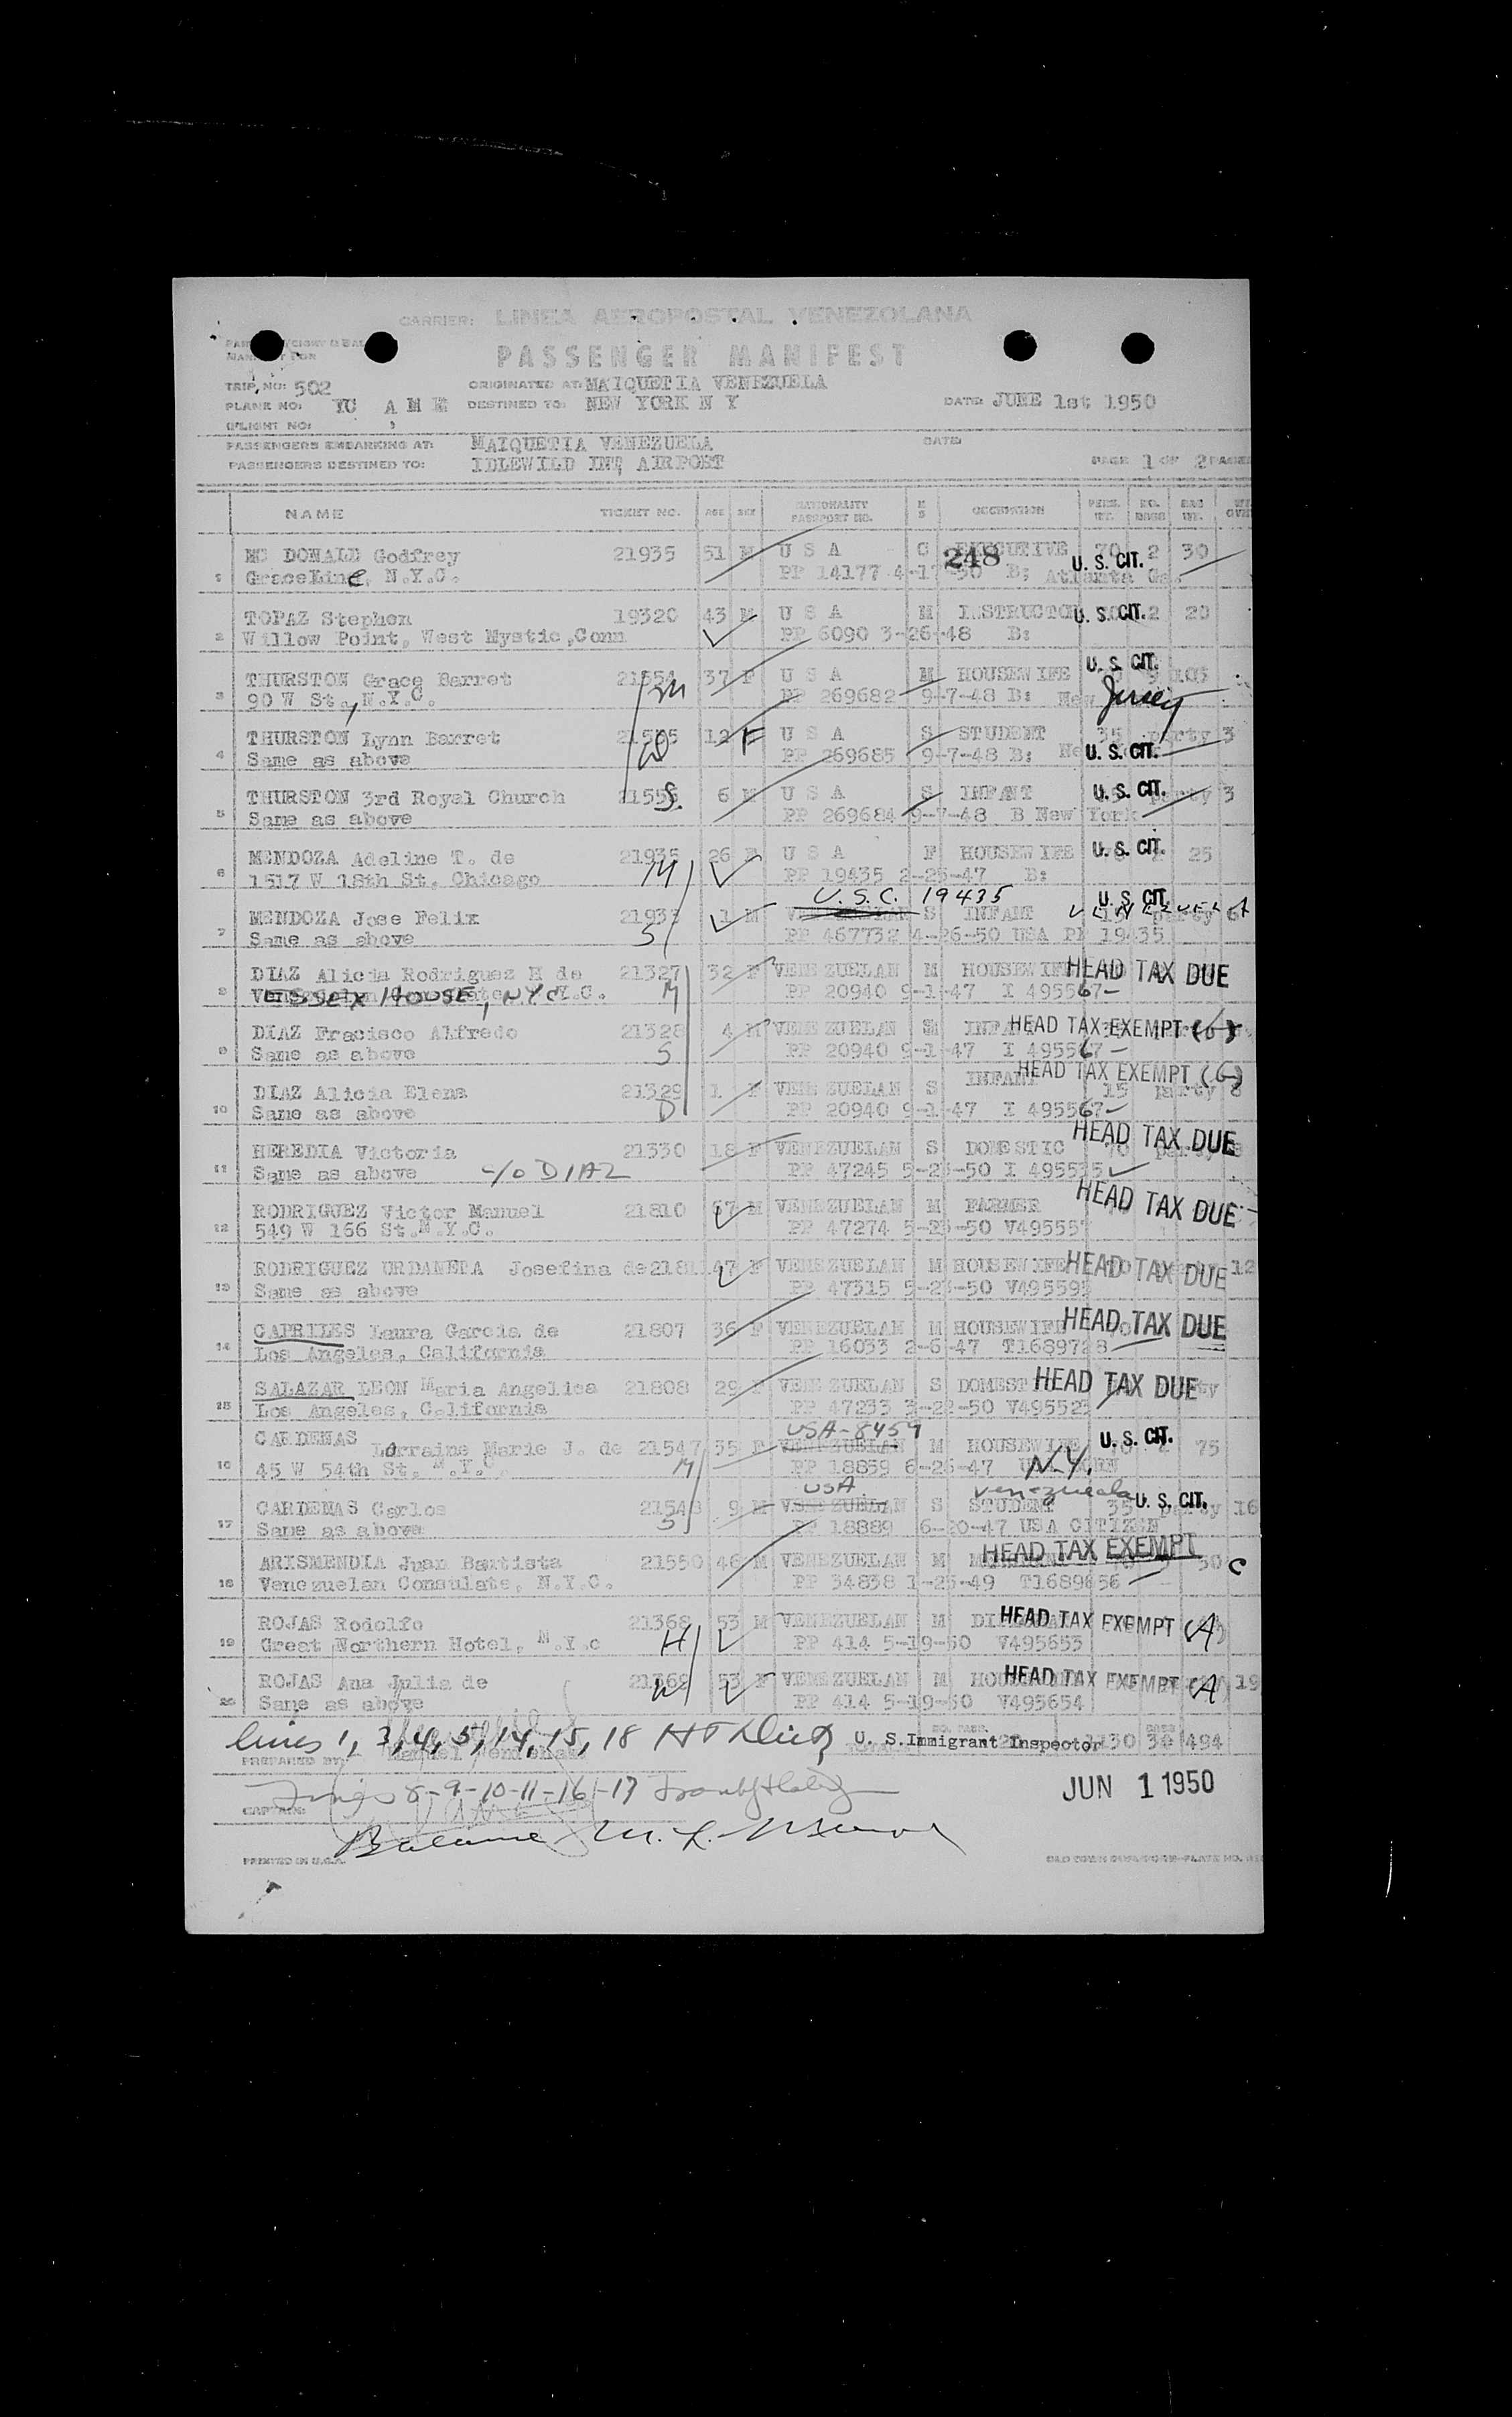 CARRIER: LINEA AEROPOSTAL VENEZOLANA
PASSENGER MANIFEST
TRIP NO: 502 ORIGINATED AT: MAIQUETIA VENEZUELA
PLANE NO. DESTINED TO: NEW YORK N Y DATE: JUNE 1st 1950
FLIGHT NO:
PASSENGERS EMBARKING AT: MAIQUETIA VENEZUELA DATE:
PASSENGERS DESTINED TO: IDLEWILD INT, AIRPORT PAGE 1 OF 2 PAGES
NAME TICKET NO. AGE SEX NATIONALITY PASSPORT NO. M S OCCUPATION PERS. WT. NO. BAGS BAG WT.
MC DONALD Godfrey 21935 51 M U S A EXECUTIVE 70 2 30
1 GraceLine, N.Y.C. PP 14177 4-17-50 B; Atlanta Ga. 248 U. S. CIT.
TOPAZ Stephen 19320 43 M U S A M INSTRUCTOR U. S. CIT. 2 20
2 Willow Point, West Mystic, Conn PP 6090 3-26-48 B:
THURSTON Grace Barret 37 F U S A M HOUSEWIFE U. S. CIT. 103
3 90 W St., N.Y.C. M PP 269682 9-7-48 B: New Jersey
THURSTON Lynn Barret 12 F U S A S STUDENT 35 party 3
4 Same as above D PP 269685 9-7-48 B; U. S. CIT.
THURSTON 3rd Royal Church 6 M U S A S INFANT U. S. CIT. party 3
5 Same as above S. PP 269684 9-7-48 B New York
MENDOZA Adeline T. de 21935 26 F U S A F HOUSEWIFE U. S. CIT. 25
6 1517 W 18th St. Chicago M PP 19435 2-25-47 B:
U.S.C. 19435 U. S. CIT.
MENDOZA Jose Felix 1 M S INFANT VENEZUELA party 6
7 Same as above S PP 467732 4-26-50 USA PP 19435
DIAZ Alicia Rodriguez H de 21327 32 F VENEZUELAN M HOUSEWIFE HEAD TAX DUE
8 ESSEX HOUSE, NYC M PP 20940 9-1-47 I 495567
DIAZ Fracisco Alfredo 21328 4 M VENEZUELAN INFANT HEAD TAX EXEMPT (G)
9 Same as above S PP 20940 9-1-47 I 495567
HEAD TAX EXEMPT (G)
DIAZ Alicia Elena 21329 1 F VENEZUELAN S INFANT 15 party 8
10 Same as above D PP 20940 9-1-47 I 495567
HEREDIA Victoria 21330 18 F VENEZUELAN S DOMESTIC HEAD TAX DUE
11 Same as above c/o DIAZ PP 47245 I 495535
RODRIGUEZ Victor Manuel 21810 67 M VENEZUELAN M FARMER HEAD TAX DUE
12 549 W 166 St. N.Y.C. PP 47274
RODRIGUEZ URDANETA Josefina de 47 F VENEZUELAN M HOUSEWIFE HEAD TAX DUE 12
13 Same as above PP 47315
CAPRILES Laura Garcia de 21807 36 F VENEZUELAN M HOUSEWIFE HEAD TAX DUE
14 Los Angeles, California PP 16033 2-6-47 T1689728
SALAZAR LEON Maria Angelica 21808 29 F VENEZUELAN S DOMEST HEAD TAX DUE
15 Los Angeles, California PP 47233 3-22-50
USA-8459
CARDENAS Lorraine Marie J. de 21547 35 F VENEZUELAN M HOUSEWIFE U. S. CIT. 75
16 45 W 54th St. N.Y.C. M PP 18859 N.Y.
USA venezuela
CARDENAS Carlos 9 M VENEZUELAN S STUDENT 35 U. S. CIT. 16
17 Same as above S PP 18889 6-20-47 USA CITIZEN
ARISMENDIA Juan Bautista 21550 46 M VENEZUELAN M HEAD TAX EXEMPT 50 C
18 Venezuelan Consulate, N.Y.C. PP 34838 1-25-49 T1689656
ROJAS Rodolfo 21368 53 M VENEZUELAN M HEAD TAX EXEMPT (A)
19 Great Northern Hotel, N.Y.c H PP 414 5-19-50 V495653
ROJAS Ana Julia de 21369 53 F VENEZUELAN M HEAD TAX EXEMPT (A) 19
20 Same as above W PP 414 5-19-50 V495654
lines 1, 3, 4, 5, 14, 15, 18 U. S. Immigrant Inspector 1130 30 494
PREPARED BY: Manuel
Lines 8-9-10-11-16-17
CAPTAIN: JUN 1 1950
Balance
PRINTED IN U.S.A.